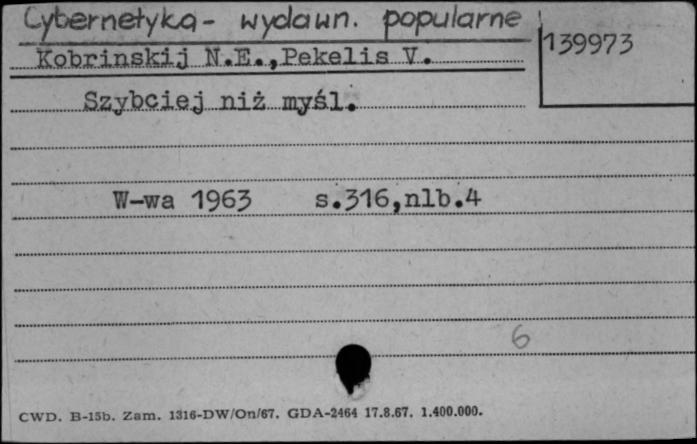 Cybernetyka - wydawn. popularne
139973
Kobrinskij N.E.,Pekelis V.
Szybciej niż myśl.
W-wa 1963 s.316,nlb.4
6
CWD. B-15b. Zam. 1316-DW/On/67. GDA-2464 17.8.67. 1.400.000.